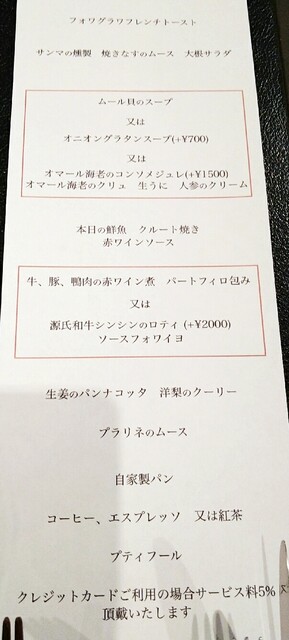 フォワグラワフレンチトースト
サンマの燻製　焼きなすのムース　大根サラダ
ムール貝のスープ
又は
オニオングラタンスープ(+¥700)
又は
オマール海老のコンソメジュレ(+¥1500)
オマール海老のクリュ　生うに　人参のクリーム
本日の鮮魚　クルート焼き
赤ワインソース
牛、豚、鴨肉の赤ワイン煮　パートフィロ包み
又は
源氏和牛シンシンのロティ (+¥2000)
ソースフォワイヨ
生姜のパンナコッタ　洋梨のクーリー
プラリネのムース
自家製パン
コーヒー、エスプレッソ　又は紅茶
プティフール
クレジットカードご利用の場合サービス料5%
頂戴いたします